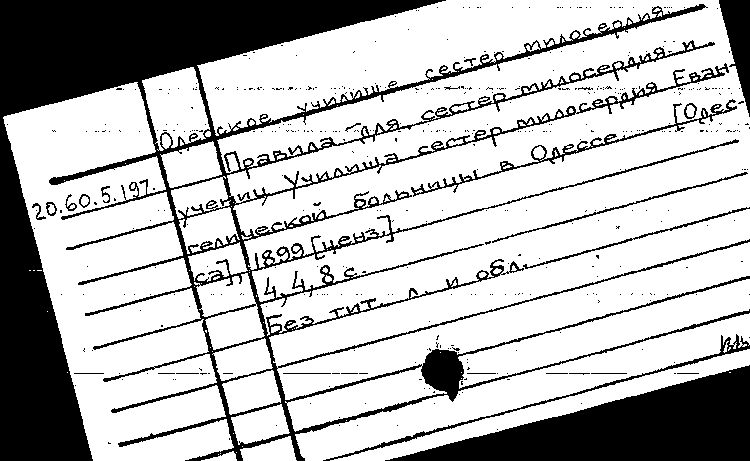 Одесское училище сестер милосердия.
20.60.5.197.
Правила для сестер милосердия и
учениц Училища сестер милосердия Еван-
гелической больницы в Одессе. [Одес-
са], 1899 [ценз.].
4, 4, 8 с.
Без тит. л. и обл.